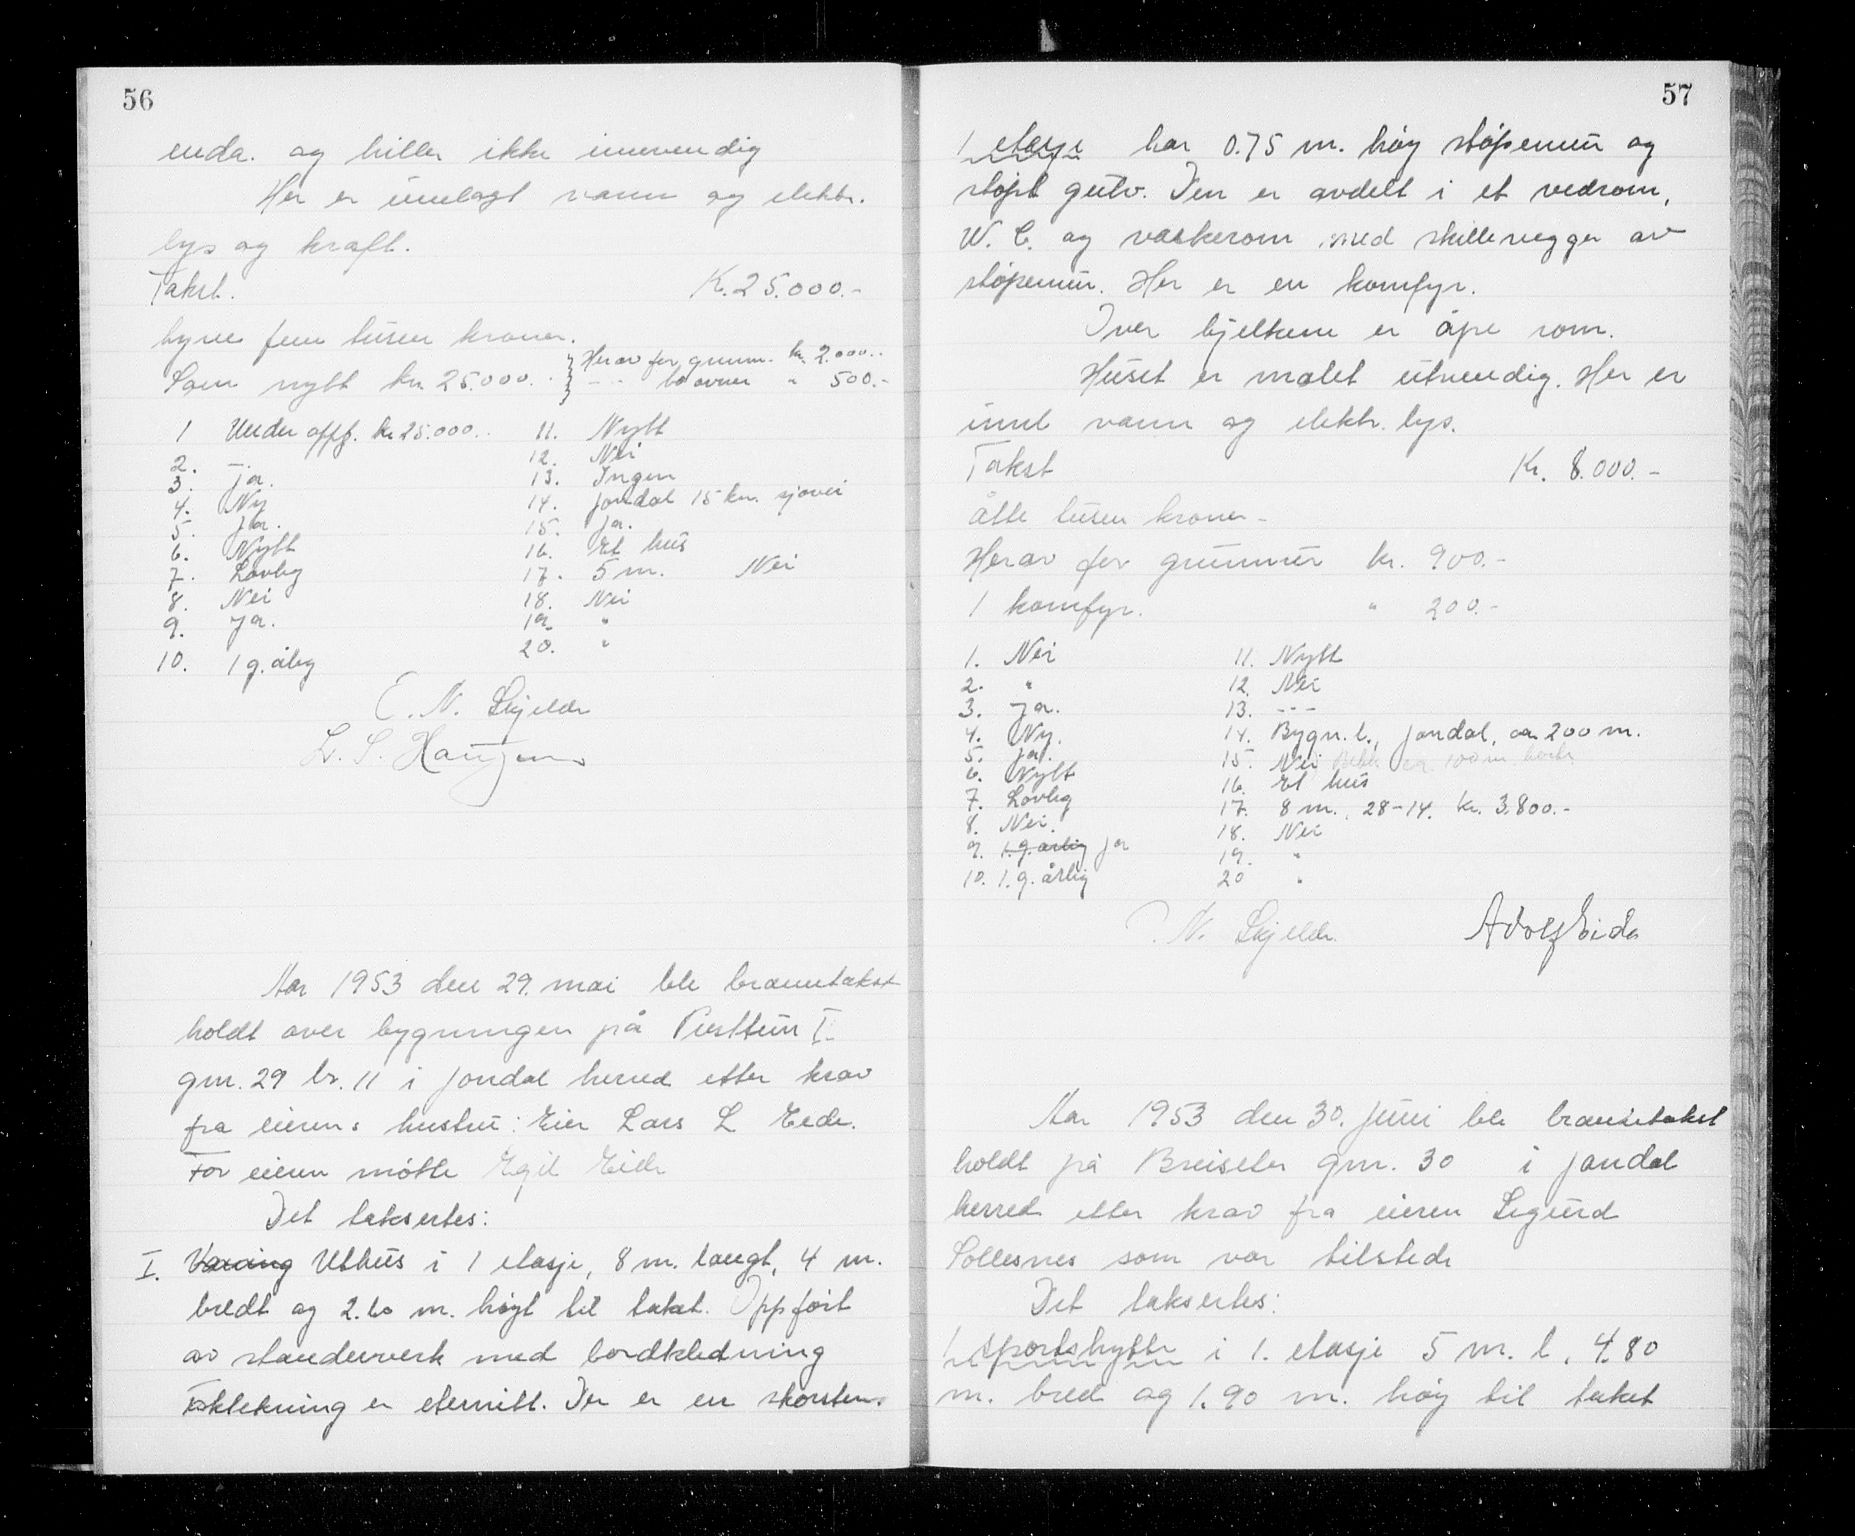 56
enda. og heller ikke innvendig
Her er innlagt vann og elektr.
lys og kraft.
Takst. Kr. 25.000.-
tyve fem tusen kroner.
Som nytt kr. 25.000.- Herav for grunm. kr. 2.000.-
- - to ovner " 500.-
1 Under oppf. kr 25.000.- 11. Nytt
2. - 12. Nei
3. Ja. 13. Ingen
4. Ny 14. Jondal 15 km. sjøvei
5. Ja. 15. Ja.
6. Nytt 16. Et hus
7. Lovlig 17. 5 m. Nei
8. Nei 18. Nei
9. Ja. 19. "
10. 1 g. årlig 20. "
N. Skjelde
L. S. Haugen
Aar 1953 den 29. mai ble branntakst
holdt over bygningen på Tusttun I
gnr. 29 br. 11 i Jondal herred etter krav
fra eierens hustru: Eier Lars L Eide.
For eieren møtte Egil Eide
Det taksertes:
I. Vaaning Uthus i 1 etasje, 8 m. langt, 4 m.
bredt og 2.60 m. høgt til taket. Oppført
av standerverk med bordkledning
Taktekning er eternitt. Der er en skorsten.
57
1 etasje har 0.75 m. høg støpemur og
støpt gulv. Den er avdelt i et vedrom,
W. C. og vaskerom med skillevegger av
støpemur. Her er en komfyr.
Over bjelkene er åpe rom.
Huset er malet utvendig. Her er
innl vann og elektr. lys.
Takst Kr. 8.000.-
åtte tusen kroner-
Herav for grunnmur kr. 900.-
1 komfyr. " 200.-
1. Nei 11. Nytt
2. " 12. Nei
3. Ja. 13. ---
4. Ny. 14. Bygn. l., Jondal, ca 200 m.
5. Ja. 15. Nei Bekk ca 100 m. borte
6. Nytt 16. Et hus
7. Lovlig 17. 8 m. 28-14. kr. 3.800.-
8. Nei. 18. Nei
9. 1. g. årlig Ja 19. "
10. 1. g. årlig 20 "
N. Skjelde. Adolf Eide
Aar 1953 den 30. juni ble branntakst
holdt på Breiseter gnr. 30 i Jondal
herred etter krav fra eieren Sigurd
Sollesnes som var tilstede
Det taksertes:
1 sportshytte i 1. etasje 5 m. l, 4.80
m. bred og 1.90 m. høg til taket